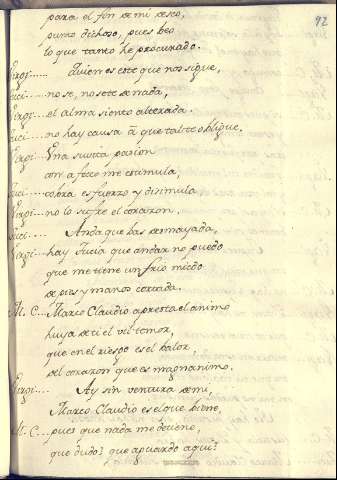 92
para el fin de mi deseo,
punto dichoso, pues beo
lo que tanto he procurado.
Virgi...... Quien es este que nos sigue,
Luci...... no se, no se te de nada,
Virgi.... el alma siento alterada.
Luci..... no hay causa q̃ que tal te obligue.
Virgi.. Una subita pasion
con afecto me estimula,
Luci.... cobra esfuerzo y disimula
Virgi... no lo sufre el corazon.
Luci..... Anda que bas desmayada,
Virgi... hay Lucia que andar no puedo
que me tiene un frio miedo
de pies y manos cortada.
M. C... Marco Claudio apresta el animo
huya de ti el vil temor,
que en el riesgo es el balor,
del corazon que es magnanimo.
Virgi.... Ay sin ventura de mi,
Marco Claudio es el que biene,
M. C... pues que nada me detiene,
que dudo? que aguardo aqui?